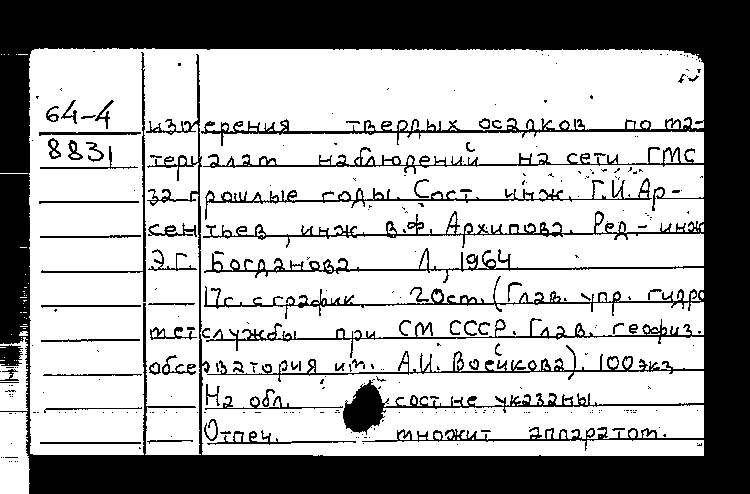 64-4
8831
измерения твердых осадков по ма-
териалам наблюдений на сети ГМС
за прошлые годы. Сост. инж. Г.И. Ар-
сентьев, инж. В.Ф. Архипова. Ред.- инж
Э.Г. Богданова. Л., 1964
17с. с график. 20см. (Глав. упр. гидро
метслужбы при СМ СССР. Глав. геофиз.
обсерватория им. А.И. Воейкова). 100экз
На обл. сост. не указаны.
Отпеч. множит аппаратом.